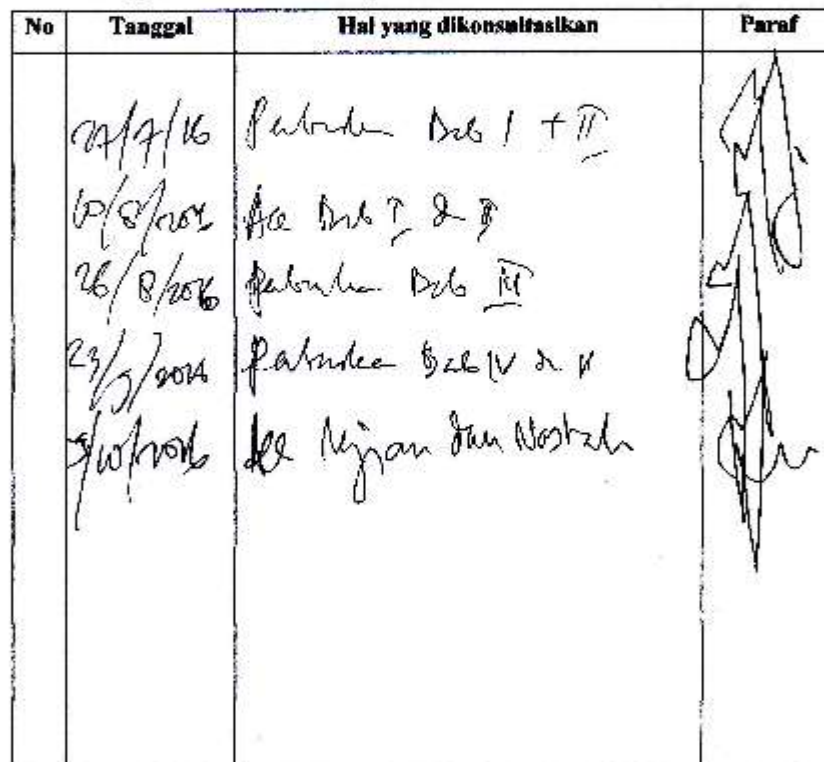 No Tanggal Hal yang dikonsultasikan Paraf
27/7/16 Perbaikan Bab I + II
10/8/2016 Acc Bab I & II
26/8/2016 Perbaikan Bab III
23/9/2016 Perbaikan Bab IV & V
/10/2016 Acc Ujian dan Naskah